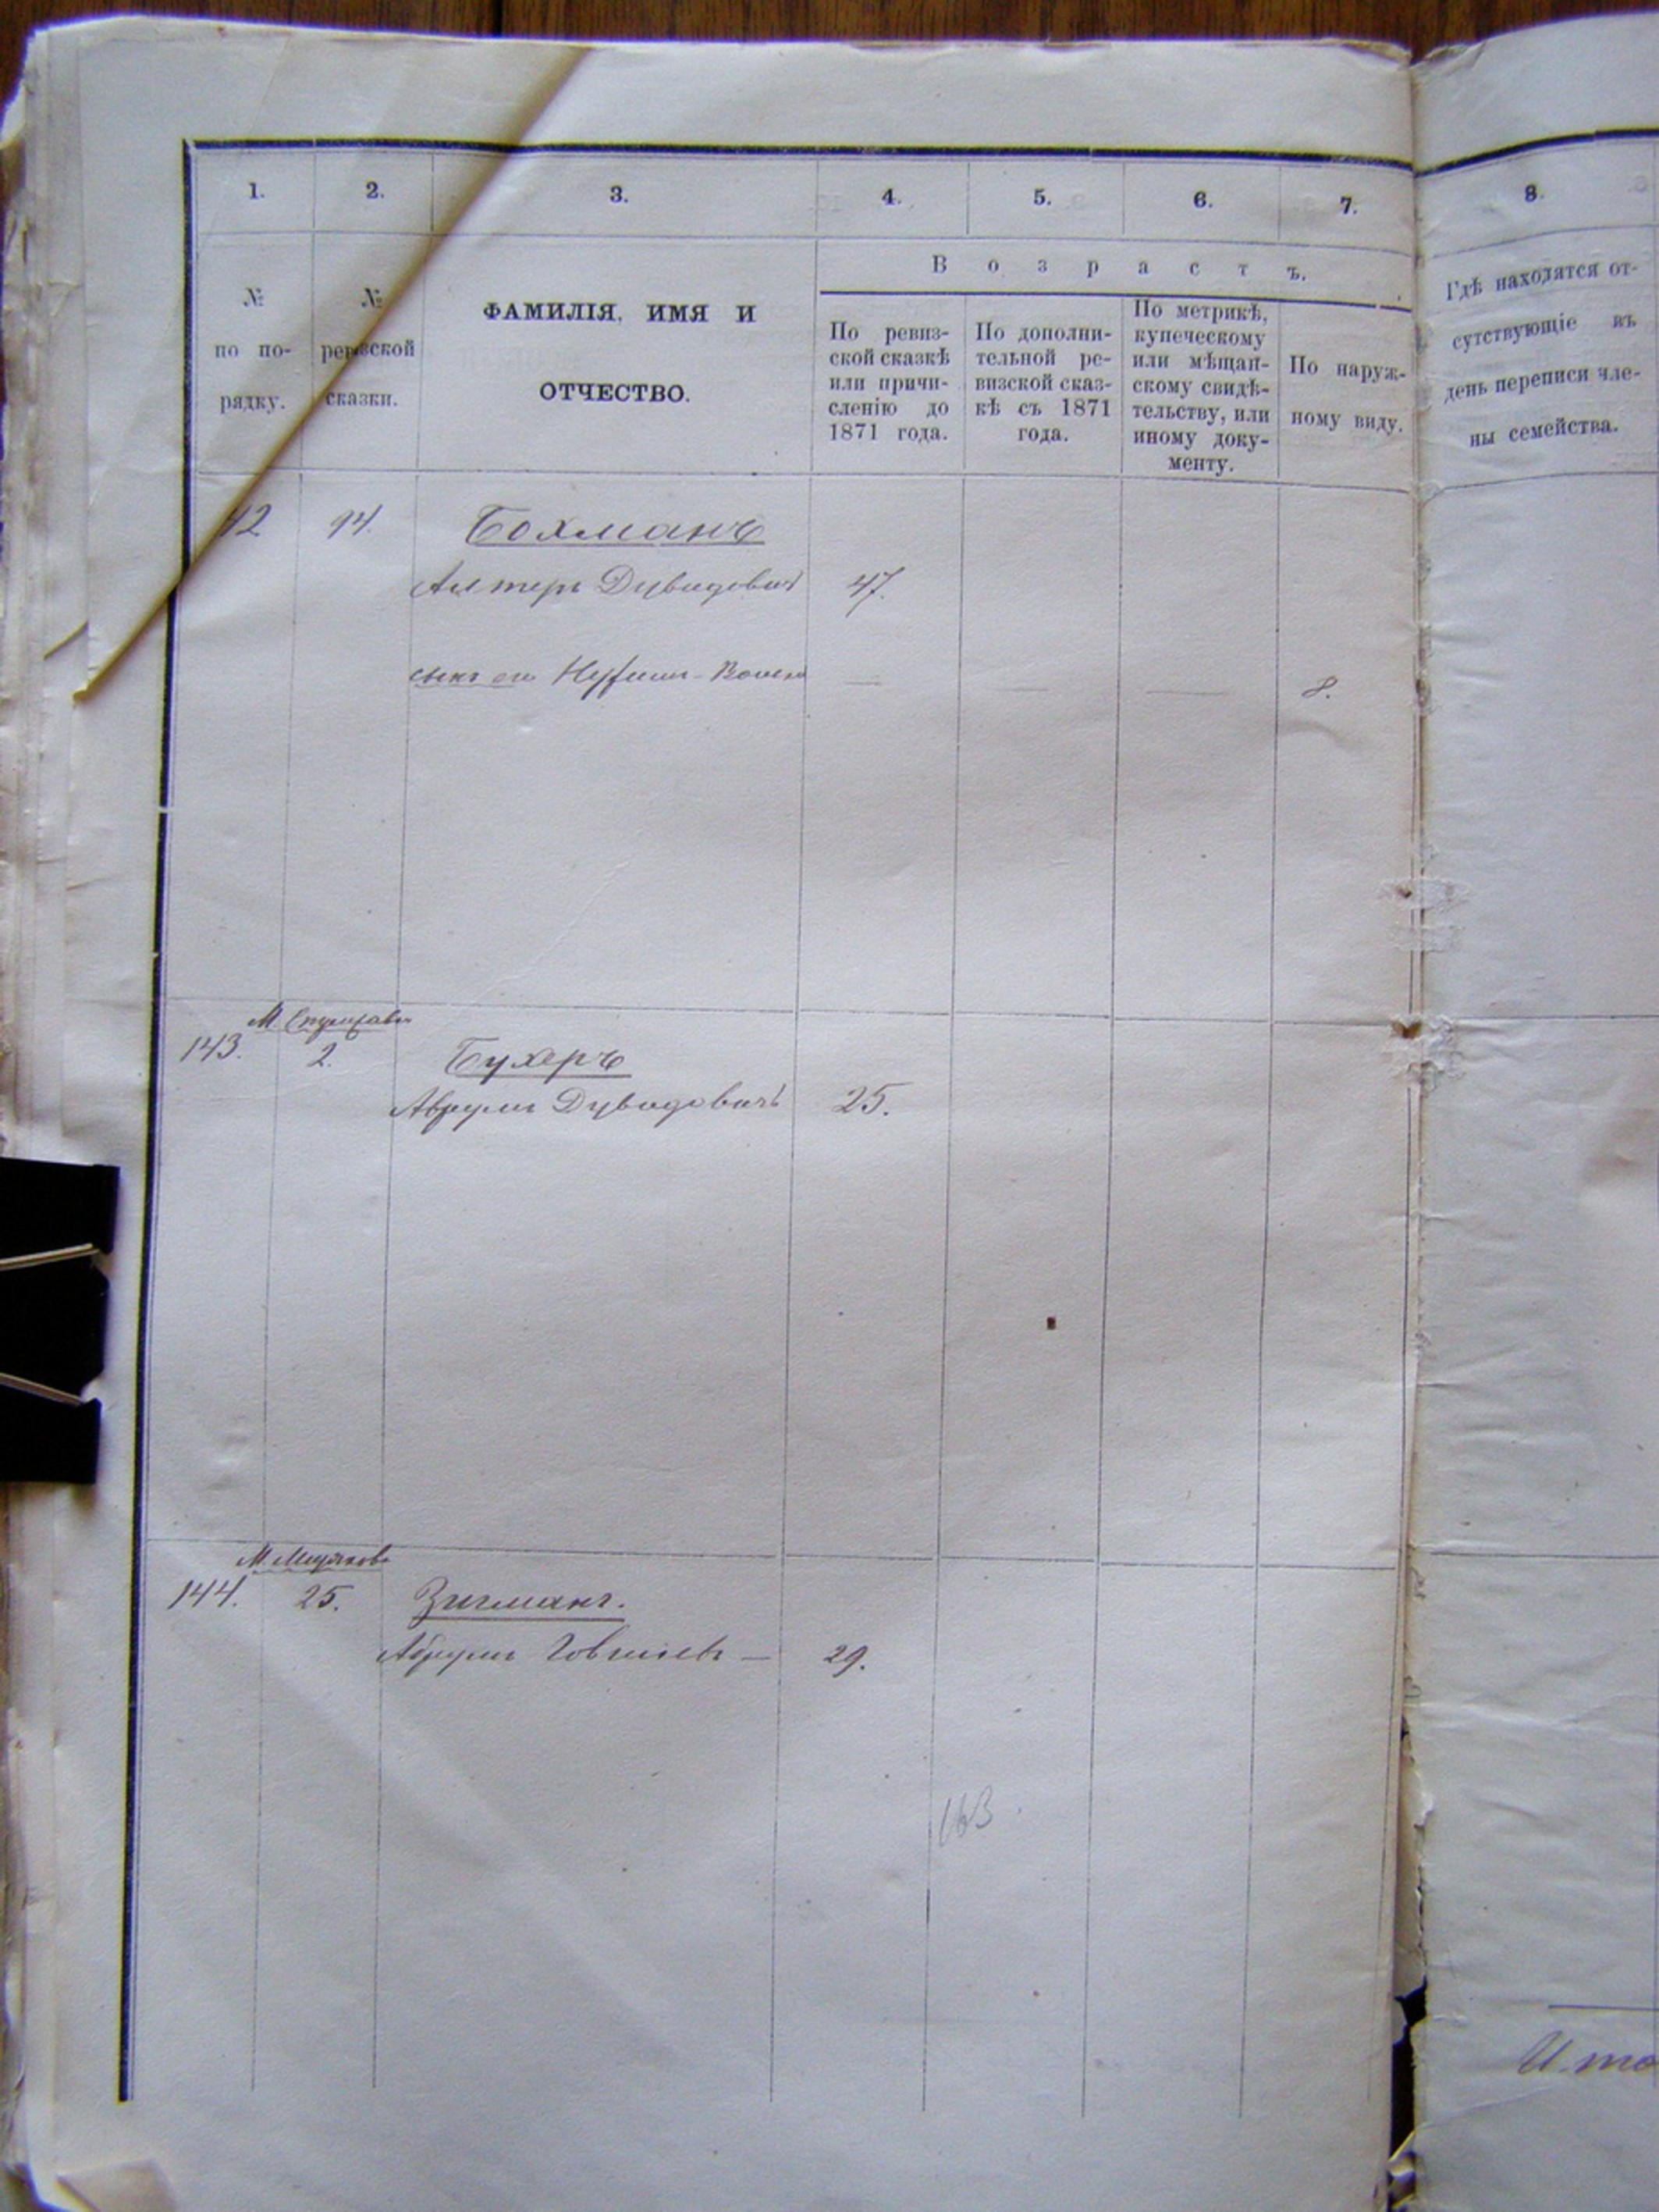 1. 2. 3. 4. 5. 6. 7. 8.
В о з р а с т ъ.
№ по по-
рядку.
№
ревизской
сказки.
ФАМИЛІЯ, ИМЯ И
ОТЧЕСТВО.
По ревиз-
ской сказкѣ
или причи-
сленію до
1871 года.
По дополни-
тельной ре-
визской сказ-
кѣ съ 1871
года.
По метрикѣ,
купеческому
или мѣщан-
скому свидѣ-
тельству, или
иному доку-
менту.
По наруж-
ному виду.
Гдѣ находятся от-
сутствующіе въ
день переписи чле-
ны семейства.
42 94. Бохманъ
Алтеръ Дувидовичъ 47.
сынъ его 8.
143. 2. Бухеръ
Аврумъ Дувидовичъ 25.
144. 25. Зигманъ.
Абрумъ — 29.
163
Ито